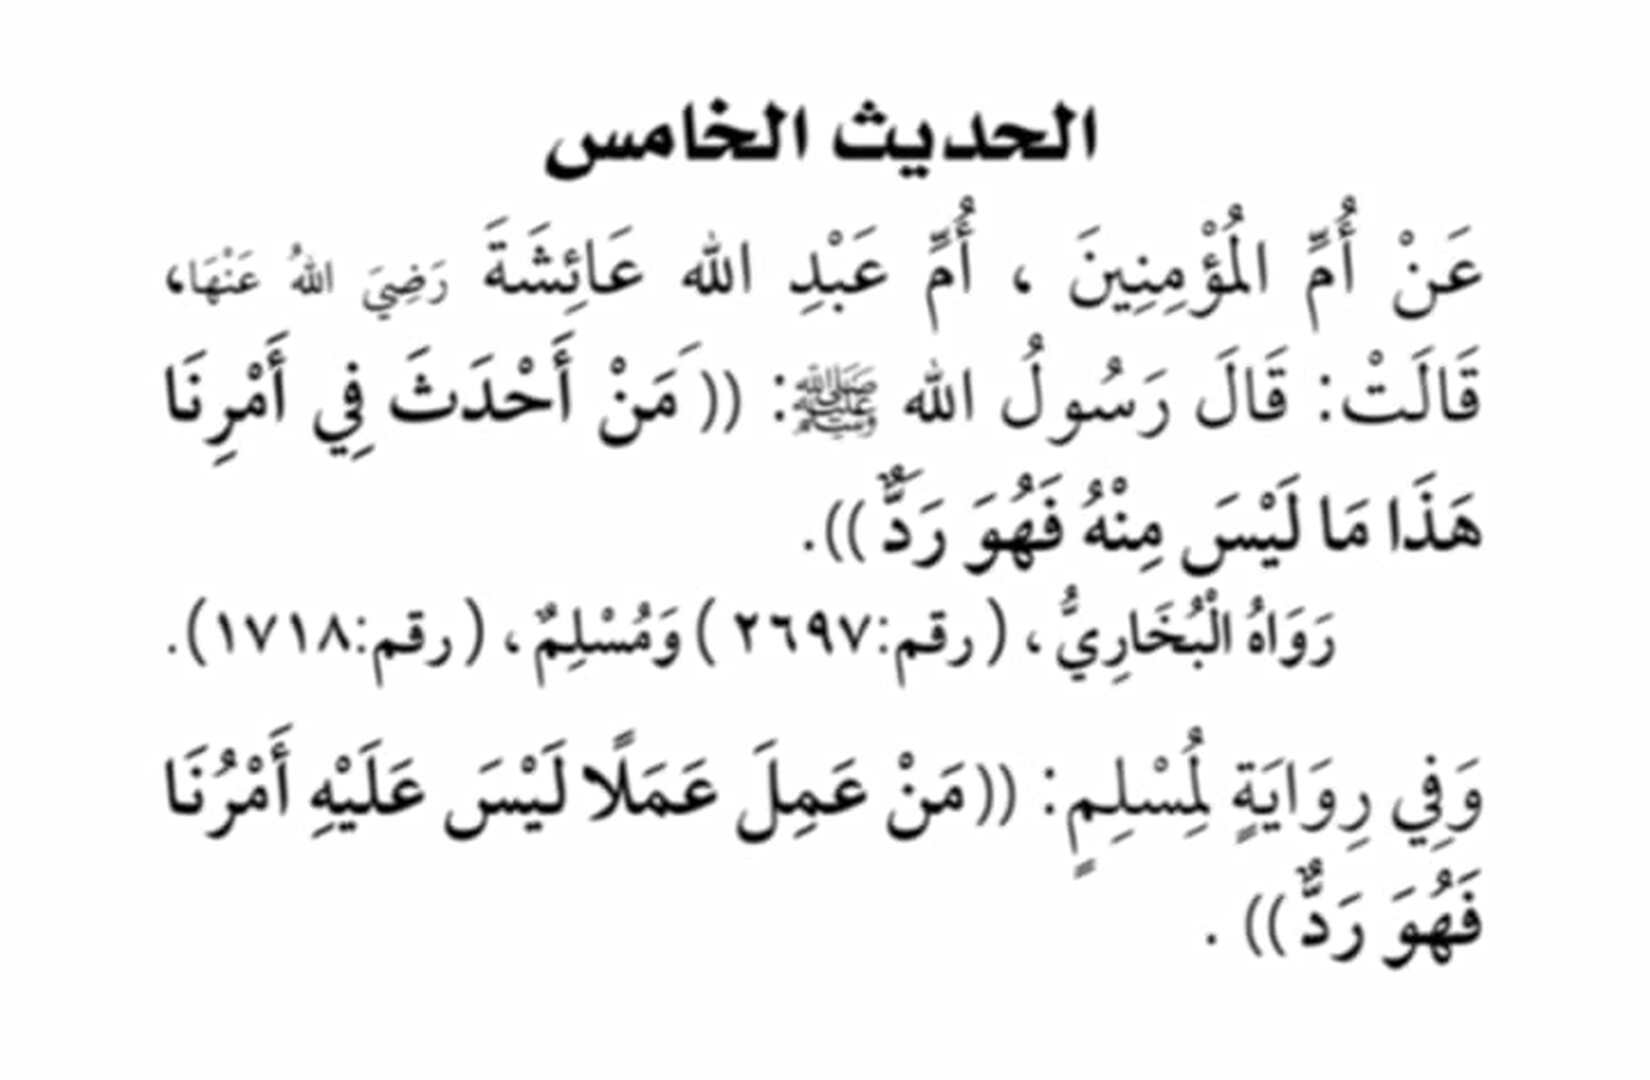 الحديث الخامس
عَنْ أُمِّ المُؤْمِنِينَ ، أُمِّ عَبْدِ الله عَائِشَةَ رَضِيَ اللهُ عَنْهَا،
قَالَتْ: قَالَ رَسُولُ الله ﷺ: ((مَنْ أَحْدَثَ فِي أَمْرِنَا
هَذَا مَا لَيْسَ مِنْهُ فَهُوَ رَدٌّ)).
رَوَاهُ الْبُخَارِيُّ ، (رقم:٢٦٩٧ ) وَمُسْلِمٌ ، (رقم:١٧١٨).
وَفِي رِوَايَةٍ لمُِسْلِمٍ: ((مَنْ عَمِلَ عَمَلًا لَيْسَ عَلَيْهِ أَمْرُنَا
فَهُوَ رَدٌّ)) .